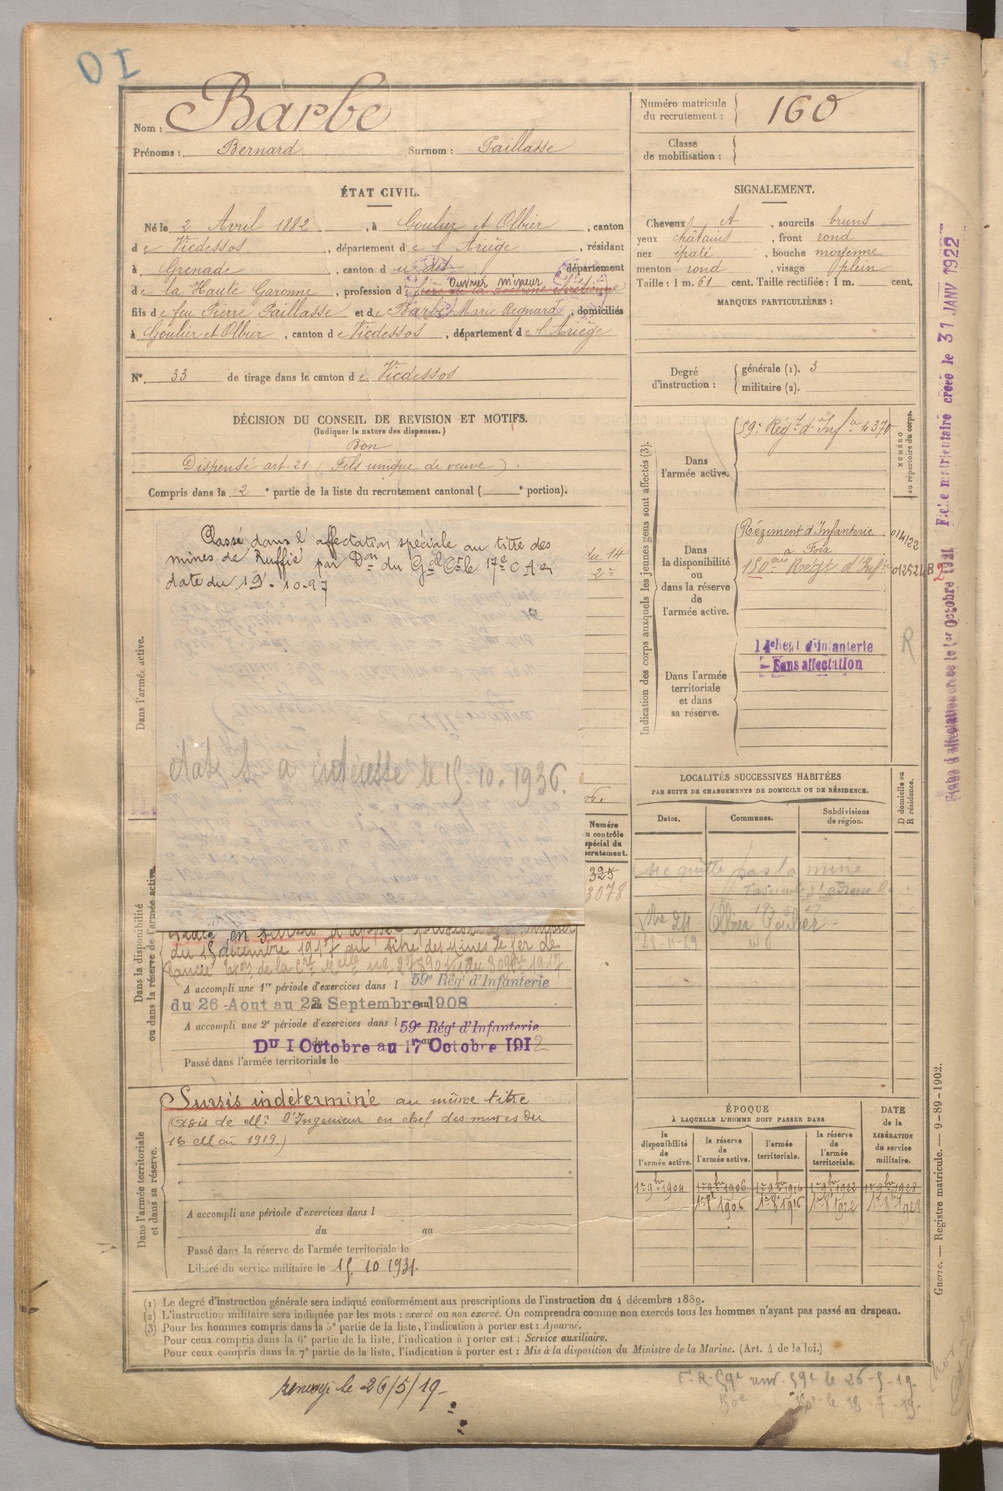 OI
Nom : Barbe
Prénoms : Bernard Surnom : Paillasse
Numéro matricule du recrutement : 160
Classe de mobilisation :
ÉTAT CIVIL.
Né le 2 Avril 1882, à Goulier et Olbier, canton
de Vicdessos, département de l'Ariège, résidant
à Grenade, canton d département
de la Haute Garonne, profession d ouvrier mineur
fils de feu Pierre Paillasse et de Barbe Marie Regnard, domiciliés
à Goulier et Olbier, canton de Vicdessos, département de l'Ariège
N° 33 de tirage dans le canton de Vicdessos
DÉCISION DU CONSEIL DE REVISION ET MOTIFS.
(Indiquer la nature des dispenses.)
Bon
Dispensé art. 21 (Fils unique de veuve).
Compris dans la 2e partie de la liste du recrutement cantonal ( e portion).
SIGNALEMENT.
Cheveux , sourcils bruns
yeux châtains, front rond
nez épaté, bouche moyenne
menton rond, visage plein
Taille : 1 m. 61 cent. Taille rectifiée : 1 m. cent.
MARQUES PARTICULIÈRES :
Degré d'instruction :
générale (1). 3
militaire (2).
Indication des corps auxquels les jeunes gens sont affectés (3).
NUMÉRO au répertoire du corps.
Dans l'armée active.
59e Régt d'Infie 4370
Dans la disponibilité ou dans la réserve de l'armée active.
Régiment d'Infanterie
à Foix 014122
Dans l'armée territoriale et dans sa réserve.
14e Regt d'Infanterie
Sans affectation
R
Dans l'armée active.
Classé dans l'affectation spéciale au titre des
mines de Ruffié par Don du Gal Ct le 17e C. A. en
date du 19. 10-27
le 15.10.1936.
Numéro au contrôle spécial du recrutement.
325
3078
Dans la disponibilité ou dans la réserve de l'armée active.
du 18 décembre 1917 au titre des Mines de fer de
A accompli une 1re période d'exercices dans l 59e Rég' d'Infanterie
du 26 Aout au 22 Septembre 1908
A accompli une 2e période d'exercices dans l 59e Rég' d'Infanterie
Du 1 Octobre au 17 Octobre 1912
Passé dans l'armée territoriale le
Dans l'armée territoriale et dans sa réserve.
Sursis indéterminé au même titre
(Avis de Mr l'Ingénieur en chef des mines du
16 Mai 1919.)
A accompli une période d'exercices dans l
du au
Passé dans la réserve de l'armée territoriale le
Libéré du service militaire le 15 10 1931.
LOCALITÉS SUCCESSIVES HABITÉES
PAR SUITE DE CHANGEMENTS DE DOMICILE OU DE RÉSIDENCE.
Dates. Communes. Subdivisions de région. D domicile ou R résidence.
ne quitte pas la mine
Olbier Goulier
ÉPOQUE À LAQUELLE L'HOMME DOIT PASSER DANS
DATE de la LIBÉRATION du service militaire.
la disponibilité de l'armée active. la réserve de l'armée active. l'armée territoriale. la réserve de l'armée territoriale.
1er 9bre 1904 1er 9bre 1906 1er 9bre 1916 1er 9bre 1922 1er 9bre 1928
1er 8bre 1905 1er 8bre 1916 1er 8bre 1922 1er 8bre 1928
(1) Le degré d'instruction générale sera indiqué conformément aux prescriptions de l'instruction du 4 décembre 1889.
(2) L'instruction militaire sera indiquée par les mots : exercé ou non exercé. On comprendra comme non exercés tous les hommes n'ayant pas passé au drapeau.
(3) Pour les hommes compris dans la 5e partie de la liste, l'indication à porter est : Ajourné.
Pour ceux compris dans la 6e partie de la liste, l'indication à porter est : Service auxiliaire.
Pour ceux compris dans la 7e partie de la liste, l'indication à porter est : Mis à la disposition du Ministre de la Marine. (Art. 4 de la loi.)
renvoyé le 26/5/19
59e le 26-5-19.
le 18-7-19.
Fiche matriculaire créée le 31 JANV 1922
Guerre. — Registre matricule. — 9-89-1902.